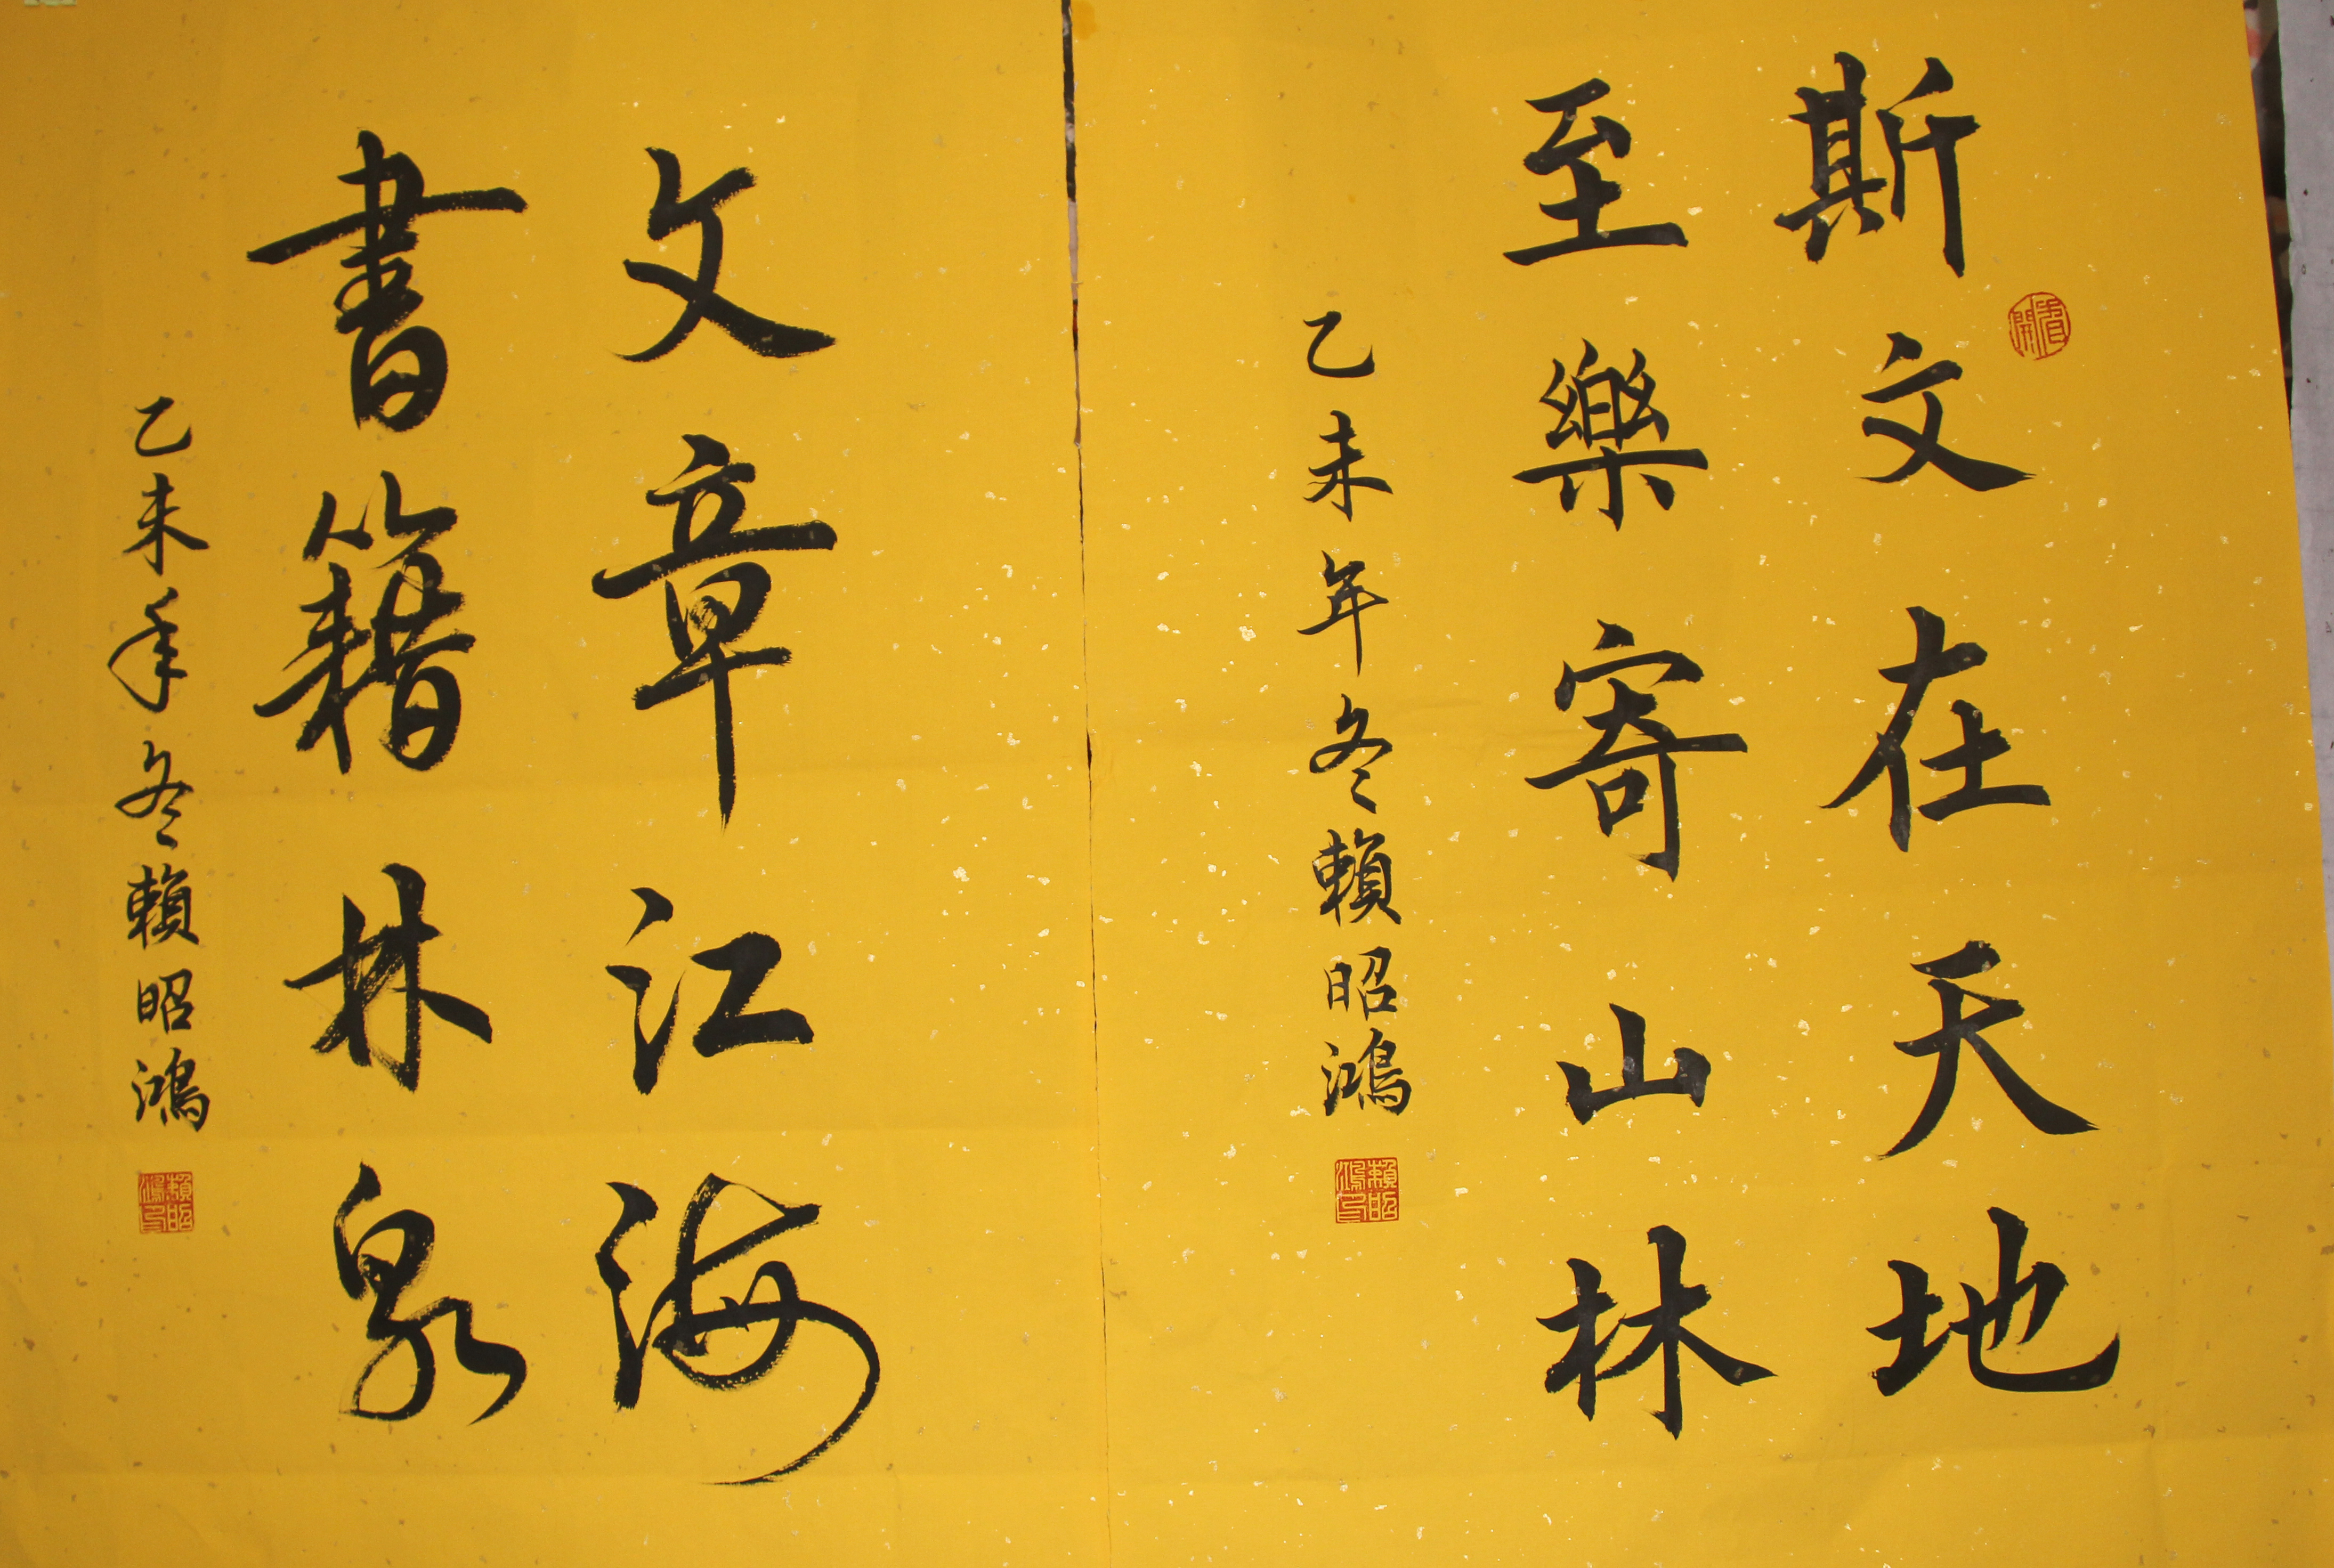 斯文在天地
至樂寄山林
乙未年冬賴昭鴻
賴昭鴻印
文章江海
書籍林泉
乙未年冬賴昭鴻
賴昭鴻印